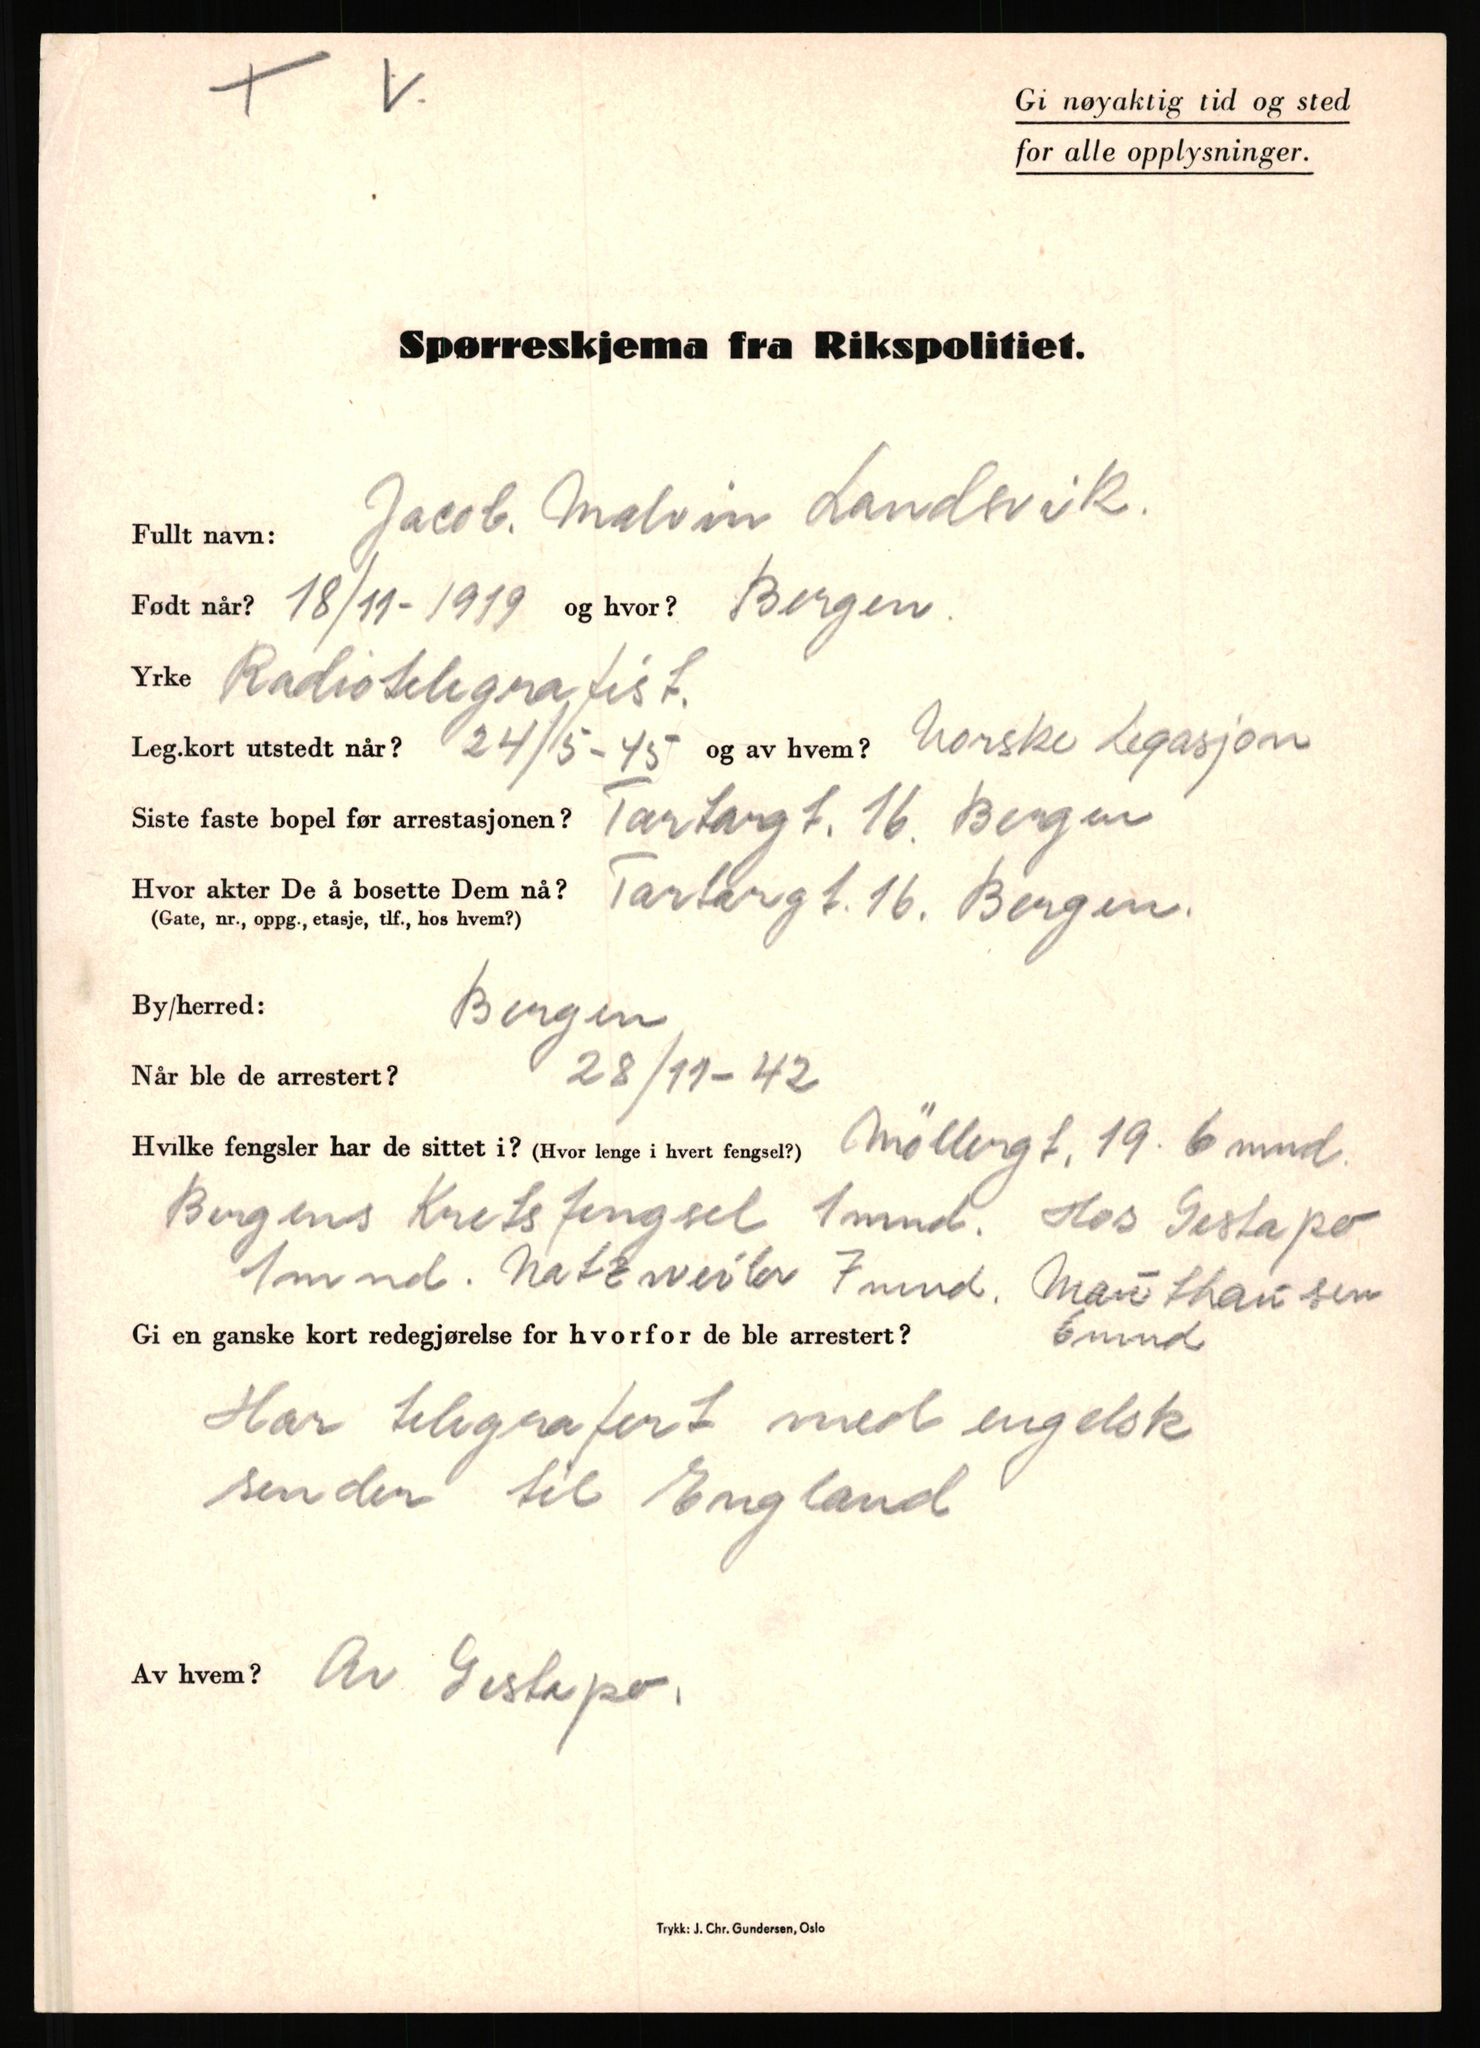 + V.
Gi nøyaktig tid og sted
for alle opplysninger.
Spørreskjema fra Rikspolitiet.
Fullt navn: Jacob. Malvin Landsvik.
Født når? 18/11-1919 og hvor? Bergen.
Yrke Radiotelegrafist.
Leg.kort utstedt når? 24/5-45 og av hvem? Norske Legasjon
Siste faste bopel før arrestasjonen? Tartargt. 16. Bergen
Hvor akter De å bosette Dem nå? Tartargt. 16. Bergen.
(Gate, nr., oppg., etasje, tlf., hos hvem?)
By/herred: Bergen
Når ble de arrestert? 28/11-42
Hvilke fengsler har de sittet i? (Hvor lenge i hvert fengsel?) Möllergt. 19. 6 mnd.
Bergens Kretsfengsel 1 mnd. Hos Gestapo
1 mnd. Natzweiler 7 mnd. Mauthausen
Gi en ganske kort redegjørelse for hvorfor de ble arrestert? 6 mnd
Har telegrafert med engelsk
sender til England
Av hvem? Av Gestapo.
Trykk: J. Chr. Gundersen, Oslo